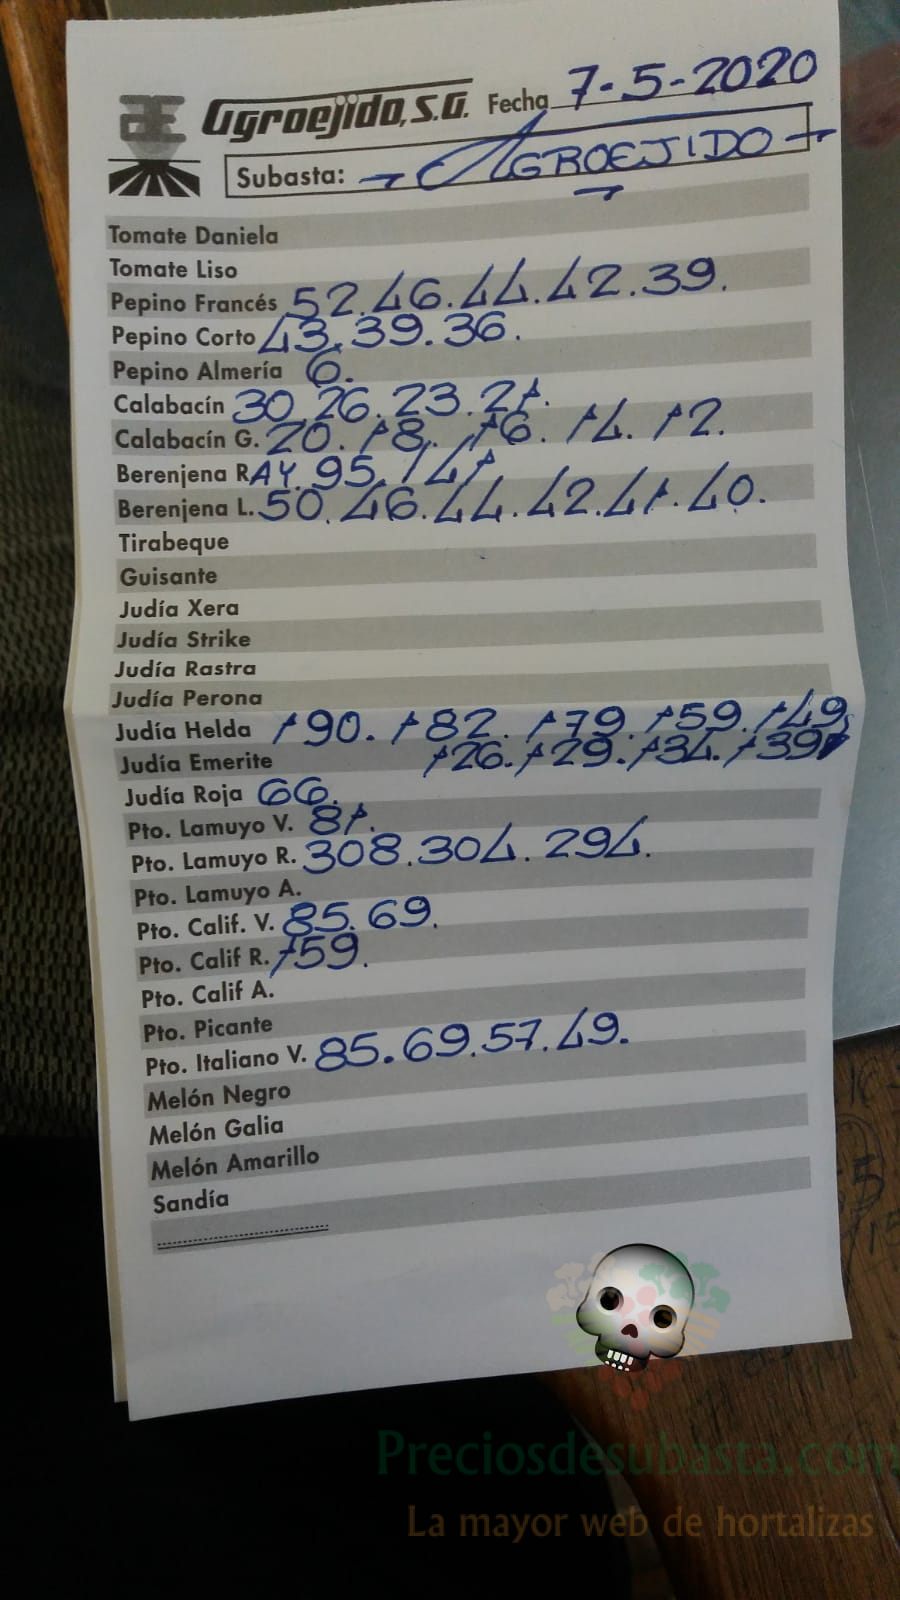 Agroejido, S.A. Fecha 7-5-2020
Subasta: → AGROEJIDO →
Tomate Daniela
Tomate Liso
Pepino Francés 52.46.44.42.39.
Pepino Corto 43.39.36.
Pepino Almería 6.
Calabacín 30.26.23.21.
Calabacín G. 20.18.16.14.12.
Berenjena RAY. 95.141
Berenjena L. 50.46.44.42.41.40.
Tirabeque
Guisante
Judía Xera
Judía Strike
Judía Rastra
Judía Perona
Judía Helda 190.182.179.159.149
Judía Emerite 126.129.134.139
Judía Roja 66.
Pto. Lamuyo V. 81.
Pto. Lamuyo R. 308.304.294.
Pto. Lamuyo A.
Pto. Calif. V. 85.69.
Pto. Calif R. 159.
Pto. Calif A.
Pto. Picante
Pto. Italiano V. 85.69.57.49.
Melón Negro
Melón Galia
Melón Amarillo
Sandía
Preciosdesubasta.com
La mayor web de hortalizas